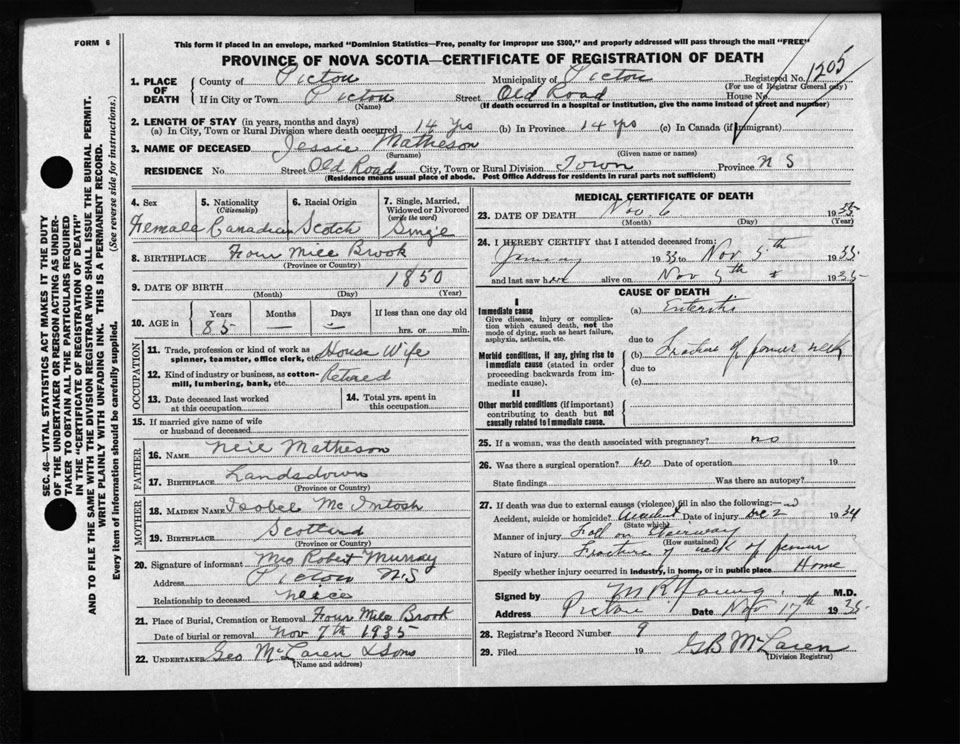 FORM 6
This form if placed in an envelope, marked "Dominion Statistics—Free, penalty for improper use $300," and properly addressed will pass through the mail "FREE"
PROVINCE OF NOVA SCOTIA—CERTIFICATE OF REGISTRATION OF DEATH
1. PLACE OF DEATH
County of Pictou Municipality of Pictou Registered No. 1205
(For use of Registrar General only)
If in City or Town Pictou Street Old Road House No.
(Name) (If death occurred in a hospital or institution, give the name instead of street and number)
2. LENGTH OF STAY (in years, months and days)
(a) In City, Town or Rural Division where death occurred 14 yrs (b) In Province 14 yrs (c) In Canada (if immigrant)
3. NAME OF DECEASED Jessie Matheson
(Surname) (Given name or names)
RESIDENCE No. Street Old Road City, Town or Rural Division Town Province N S
(Residence means usual place of abode. Post Office Address for residents in rural parts not sufficient)
SEC. 46—VITAL STATISTICS ACT MAKES IT THE DUTY
OF THE UNDERTAKER OR PERSON ACTING AS UNDER-
TAKER TO OBTAIN ALL THE PARTICULARS REQUIRED
IN THE "CERTIFICATE OF REGISTRATION OF DEATH"
AND TO FILE THE SAME WITH THE DIVISION REGISTRAR WHO SHALL ISSUE THE BURIAL PERMIT.
WRITE PLAINLY WITH UNFADING INK. THIS IS A PERMANENT RECORD.
Every item of information should be carefully supplied. (See reverse side for instructions.)
4. Sex
Female
5. Nationality
(Citizenship)
Canadian
6. Racial Origin
Scotch
7. Single, Married,
Widowed or Divorced
(write the word)
Single
8. BIRTHPLACE Four Mile Brook
(Province or Country)
9. DATE OF BIRTH 1850
(Month) (Day) (Year)
10. AGE in Years Months Days If less than one day old
85 — — hrs. or min.
OCCUPATION
11. Trade, profession or kind of work as
spinner, teamster, office clerk, etc. House Wife
12. Kind of industry or business, as cotton-
mill, lumbering, bank, etc. Retired
13. Date deceased last worked
at this occupation
14. Total yrs. spent in
this occupation
15. If married give name of wife
or husband of deceased
FATHER
16. NAME Neil Matheson
17. BIRTHPLACE Landsdown
(Province or Country)
MOTHER
18. MAIDEN NAME Isobel McIntosh
19. BIRTHPLACE Scotland
(Province or Country)
20. Signature of informant Mrs Robert Murray
Address Pictou N.S
Relationship to deceased neice
21. Place of Burial, Cremation or Removal Four Mile Brook
Date of burial or removal Nov 7th 1935
22. UNDERTAKER Geo McLaren & Sons
(Name and address)
MEDICAL CERTIFICATE OF DEATH
23. DATE OF DEATH Nov 6 1935
(Month) (Day) (Year)
24. I HEREBY CERTIFY that I attended deceased from:
January 1935 to Nov 5th 1935
and last saw her alive on Nov 5th 1935
CAUSE OF DEATH
I
Immediate cause
Give disease, injury or complica-
tion which caused death, not the
mode of dying, such as heart failure,
asphyxia, asthenia, etc.
(a) Enteritis
due to
Morbid conditions, if any, giving rise to
immediate cause (stated in order
proceeding backwards from im-
mediate cause).
(b) Fracture of femur neck
due to
(c)
II
Other morbid conditions (if important)
contributing to death but not
causally related to immediate cause.
25. If a woman, was the death associated with pregnancy? no
26. Was there a surgical operation? no Date of operation 19
State findings Was there an autopsy?
27. If death was due to external causes (violence) fill in also the following:—
Accident, suicide or homicide? Accident Date of injury Dec 2 1934
(State which)
Manner of injury Fall on Stairway
(How sustained)
Nature of injury Fracture of neck of femur
Specify whether injury occurred in industry, in home, or in public place Home
Signed by M R Young M.D.
Address Pictou Date Nov 17th 1935
28. Registrar's Record Number 9
29. Filed 19 GB McLaren
(Division Registrar)